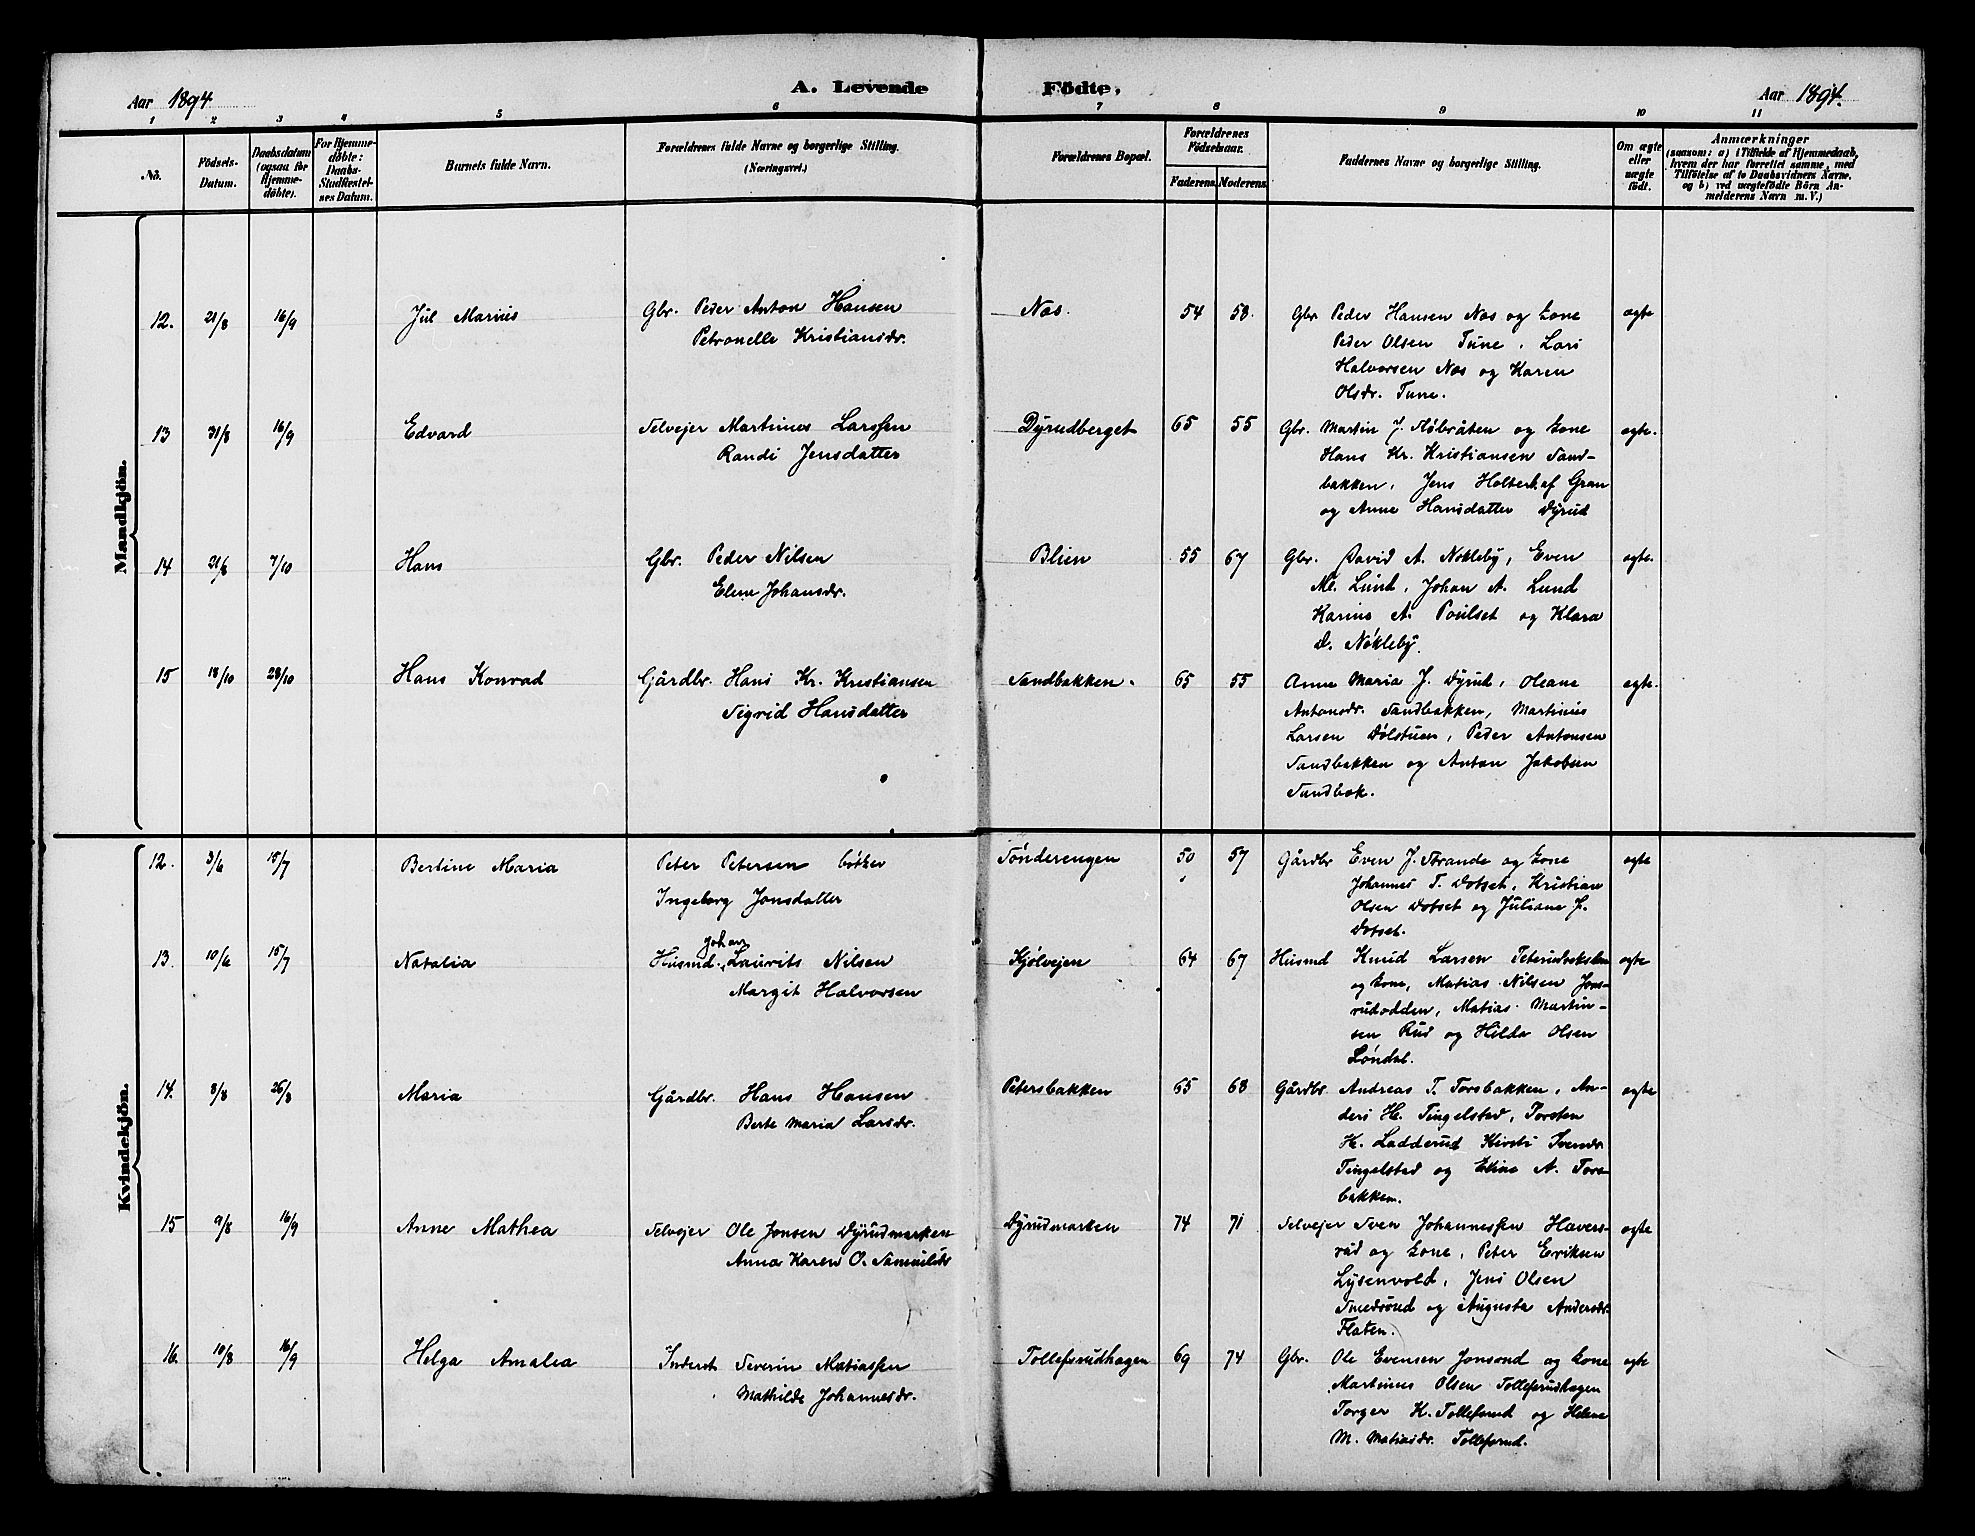 Aar 1894.
A. Levende Födte.
Aar 1894.
1 2 3 4 5 6 7 8 9 10 11
No.
Födsels-
Datum.
Daabsdatum
(ogsaa for
Hjemme-
döbte).
For Hjemme-
döbte:
Daabs-
Stadfæstel-
ses Datum.
Barnets fulde Navn.
Forældrenes fulde Navne og borgerlige Stilling.
(Næringsvei.)
Forældrenes Bopæl.
Forældrenes
Födselsaar.
Faderens. Moderens.
Faddernes Navne og borgerlige Stilling.
Om ægte
eller
uægte
födt.
Anmærkninger
(saasom: a) i Tilfælde af Hjemmedaab,
hvem der har forrettet samme, med
Tilföielse af to Daabsvidners Navne,
og b) ved uægtefödte Börn An-
melderens Navn m. V.)
Mandkjön.
12. 21/8 16/9 Jul Marius Gbr. Peder Anton Hansen Næs. 54 58. Gbr Peder Hansen Næs og kone ægte
Petronelle Kristiansdr. Peder Olsen Tune, Lars
Halvorsen Næs og Karen
Olsdr. Tune.
13 31/8 16/9 Edvard Selvejer Martinus Larssen Dyrudberget 65 55 Gbr. Martin J. og kone ægte.
Randi Jensdatter Hans Kr. Kristiansen Sand-
bakken, Jens af Gran
og Anne Hansdatter Dyrud
14 21/8 7/10 Hans Gbr. Peder Nilsen Blien 55 67 Gbr. David A. Nökleby, Even ægte.
Eline Johansdr. M. Lund, Johan A. Lund
Karine A. Poulset og Klara
D. Nökleby.
15 18/10 28/10 Hans Konrad Gårdbr. Hans Kr. Kristiansen Sandbakken. 65 55 Anne Maria J. Dyrud, Oleane ægte.
Sigrid Hansdatter Antonsdr. Sandbakken, Martinius
Larsen Dölstuen, Peder Antonsen
Sandbakken og Anton Jakobsen
Sandbak.
Kvindekjön.
12. 3/6 15/7 Bertine Maria Peter Petersen bötker Sönderengen 50 57 Gårdbr Even J. Strande og kone ægte
Ingeborg Jonsdatter Johannes T. Dotset, Kristian
Olsen Dotset og Juliane J.
Dotset.
Johan
13. 10/6 15/7 Natalia Husmd. Laurits Nilsen Kjölvejen 64 67 Husmd Knud Larsen ægte
Margit Halvorsen og kone, Matias Nilsen Jons-
rudodden, Matias Martin-
sen Rud og Hilda Olsen
Löndal.
14. 8/8 26/8 Maria Gårdbr. Hans Hansen Petersbakken 65 68 Gårdbr. Andreas T. Torsbakken, An- ægte
Berte Maria Larsdr. ders H. Tingelstad, Torsten
H. Ladderud Kirsti Svendr.
Tingelstad og Eline A. Tors-
bakken.
15 9/8 16/9 Anne Mathea Selvejer Ole Jonsen Dyrudmarken Dyrudmarken 74 71 Selvejer Sven Johannessen Havers- ægte
Anna Karen O. Samuelsdr rud og kone, Peter Eriksen
Lysenvold, Jens Olsen
Smedsrud og Augusta Andersdr.
Flaten.
16. 10/8 16/9 Helga Amalia Inderst Severin Matiassen Tollefsrudhagen 69 74 Gbr. Ole Evensen Jonsrud og kone ægte
Mathilde Johannesdr. Martinus Olsen Tollefsrudhagen
Torger K. Tollefsrud og Helene
M. Matiasdr. Tollefsrud.